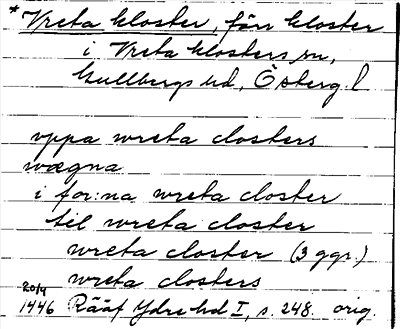 * Vreta kloster, förr kloster
i Vreta klosters sn,
Gullbergs hd, Österg. l
uppa wreta closters
wægna
i for:na wreta closter
til wreta closter
wreta closter (3 ggr.)
wreta closters
20/4
1446 Rääf Ydre hd I, s. 248. orig.